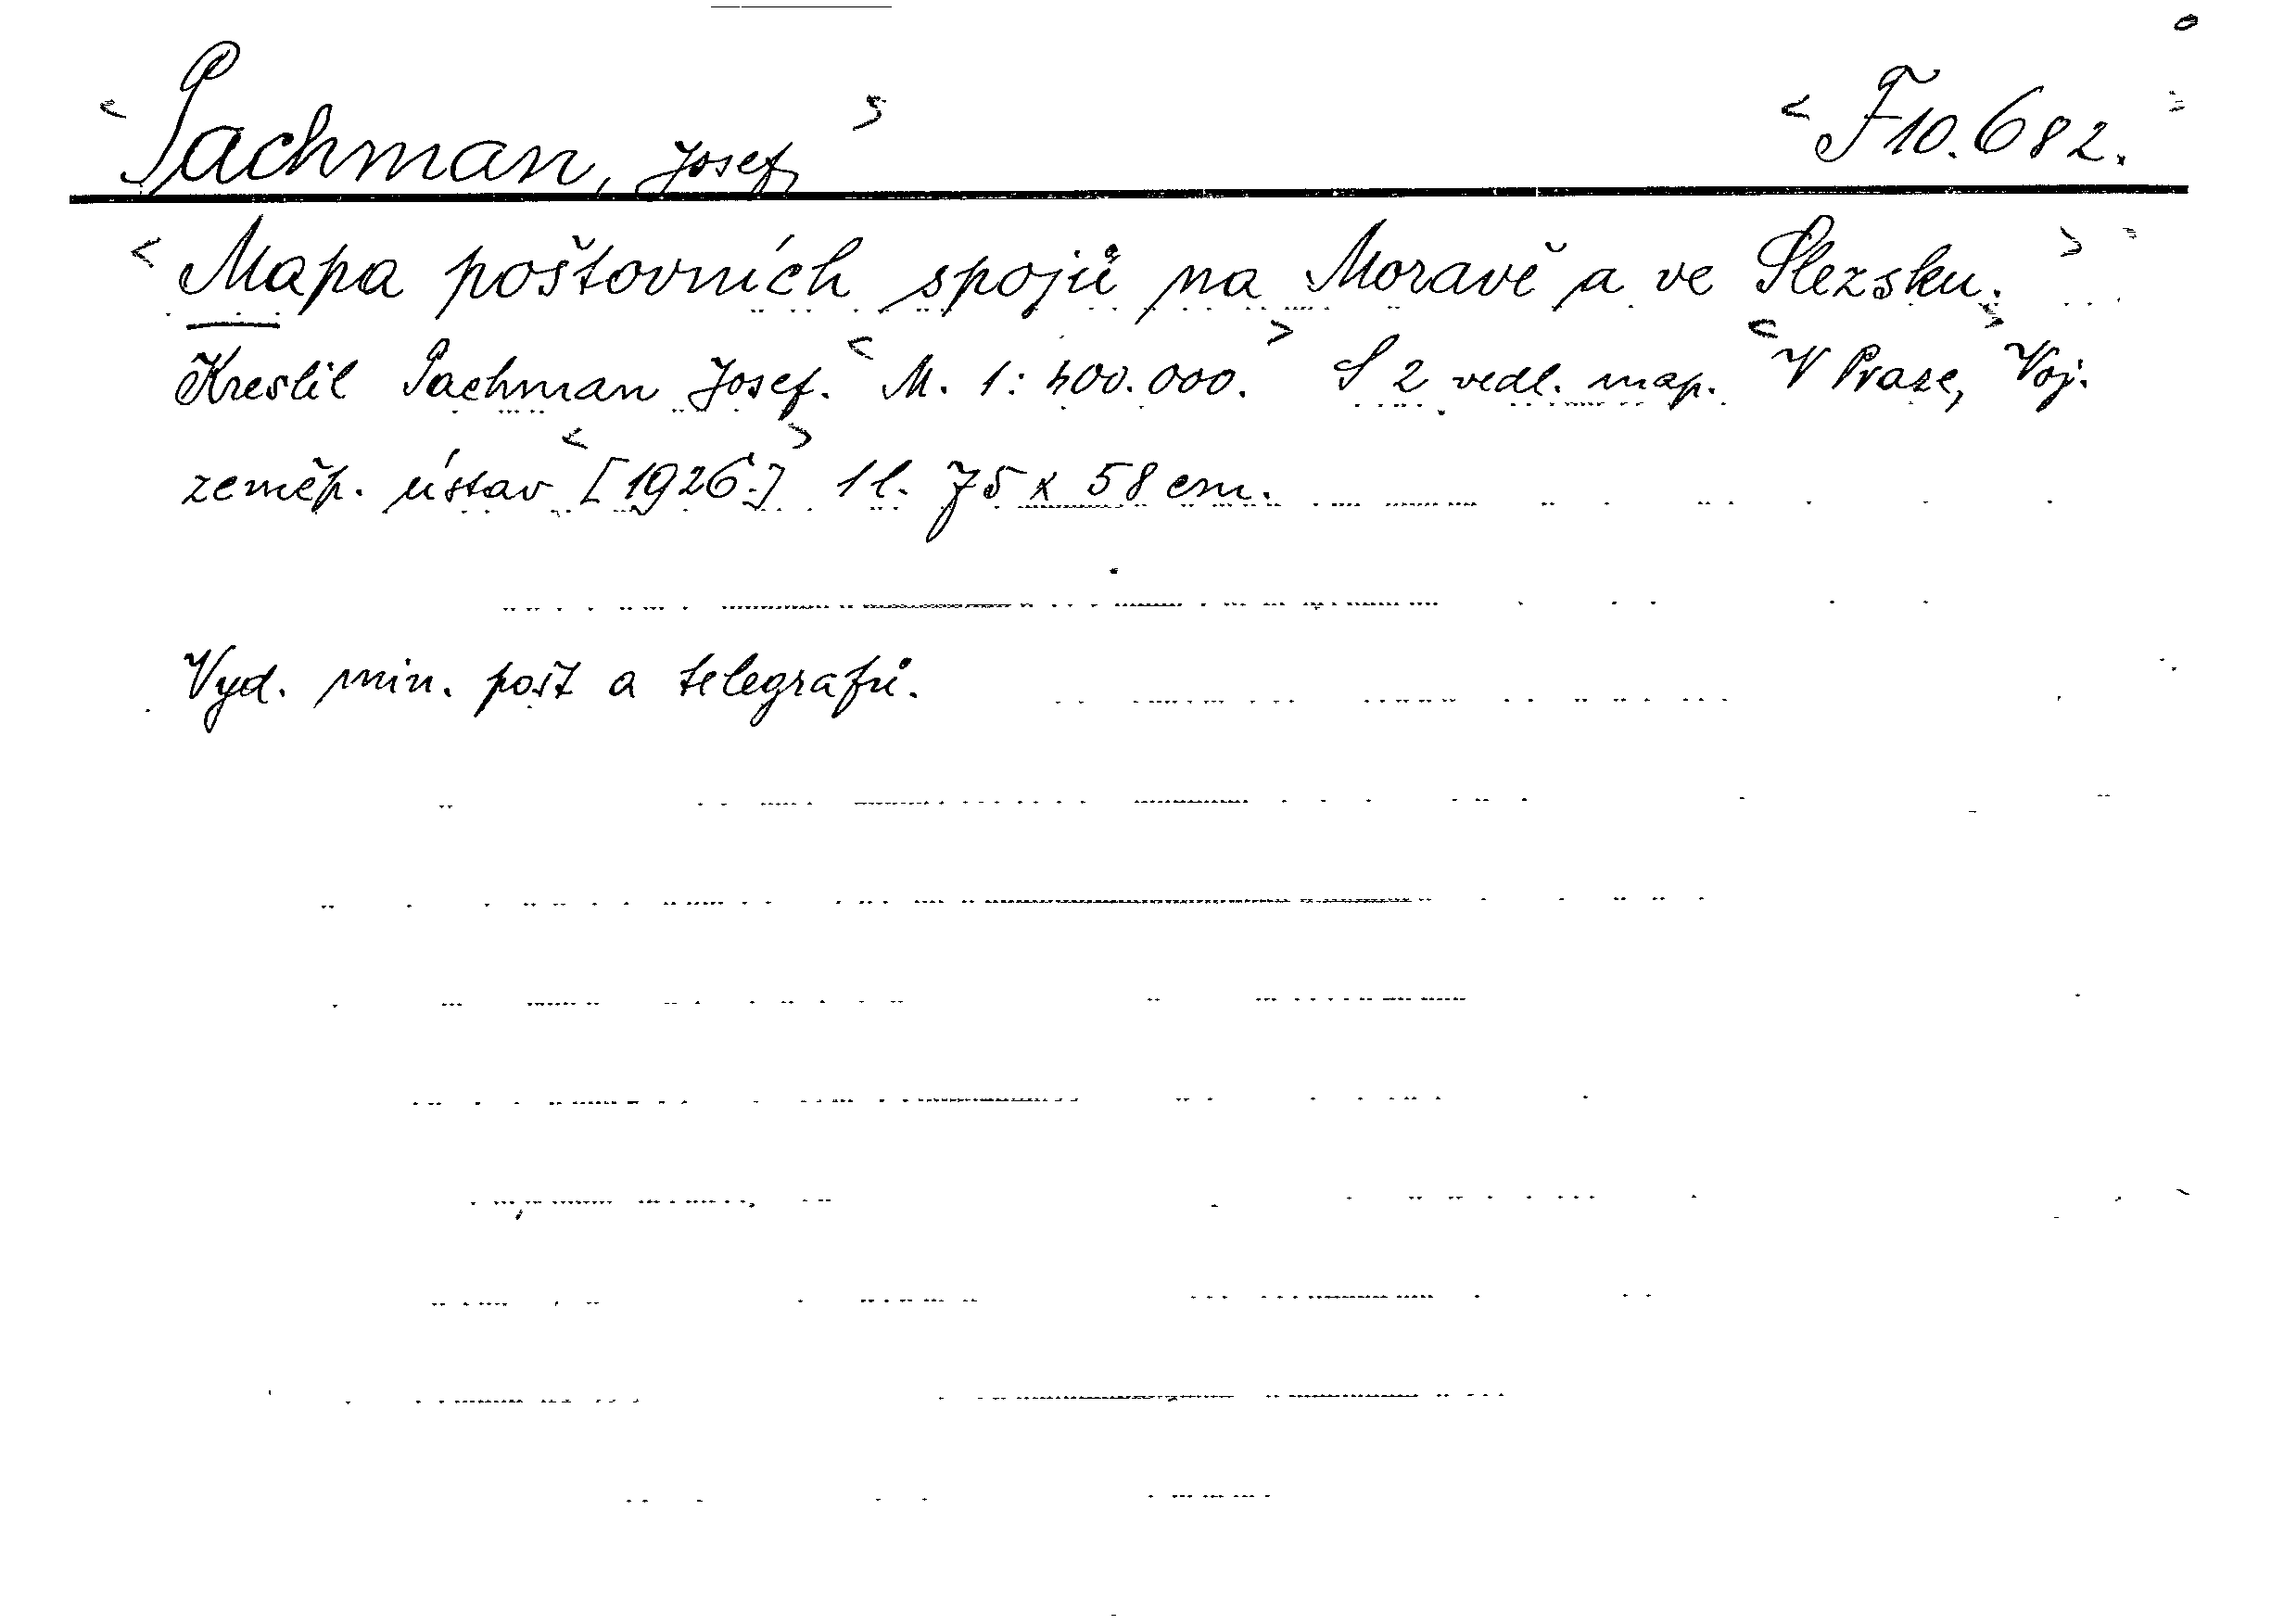 < Pachman, Josef > < F 10.682. >
< Mapa poštovních spojů na Moravě a ve Slezsku. >
Kreslil Pachman Josef. < M. 1:400.000. > S 2 vedl. map. < V Praze, > Voj.
zeměp. ústav < [1926.] > 1 l. 75 x 58 cm.
Vyd. min. pošt a telegrafů.